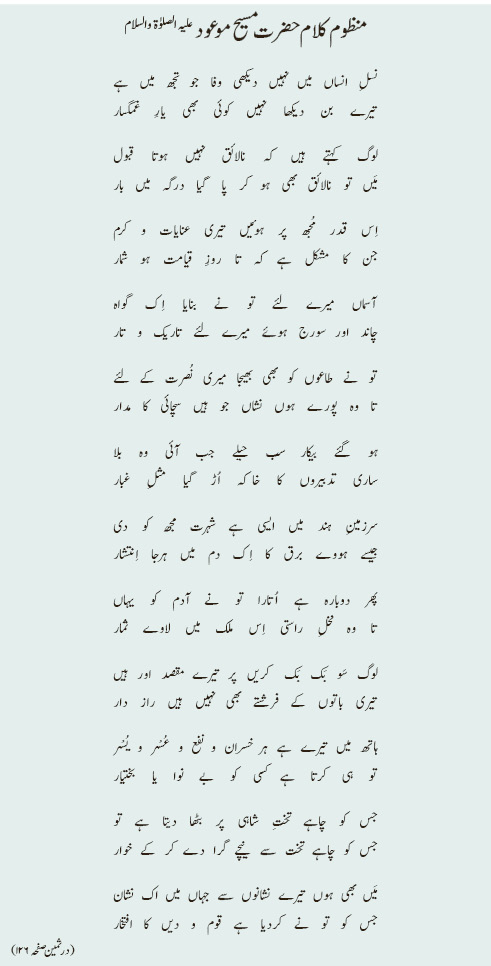 منظوم کلام حضرت مسیح موعود علیہ الصلوٰۃ والسلام
نسلِ انساں میں نہیں دیکھی وفا جو تجھ میں ہے
تیرے بن دیکھا نہیں کوئی بھی یارِ غمگسار
لوگ کہتے ہیں کہ نالائق نہیں ہوتا قبول
مَیں تو نالائق بھی ہو کر پا گیا درگہ میں بار
اِس قدر مُجھ پر ہوئیں تیری عنایات و کرم
جن کا مشکل ہے کہ تا روزِ قیامت ہو شمار
آسماں میرے لئے تو نے بنایا اِک گواہ
چاند اور سورج ہوئے میرے لئے تاریک و تار
تو نے طاعوں کو بھی بھیجا میری نُصرت کے لئے
تا وہ پورے ہوں نشاں جو ہیں سچائی کا مدار
ہو گئے بیکار سب حیلے جب آئی وہ بلا
ساری تدبیروں کا خاکہ اُڑ گیا مثلِ غبار
سرزمینِ ہند میں ایسی ہے شہرت مجھ کو دی
جیسے ہووے برق کا اِک دم میں ہرجا اِنتشار
پھر دوبارہ ہے اُتارا تو نے آدم کو یہاں
تا وہ نخلِ راستی اِس ملک میں لاوے ثمار
لوگ سَو بَک بَک کریں پر تیرے مقصد اور ہیں
تیری باتوں کے فرشتے بھی نہیں ہیں راز دار
ہاتھ میں تیرے ہے ہر خسران و نفع و عُسر و یُسر
تو ہی کرتا ہے کسی کو بے نوا یا بختیار
جس کو چاہے تختِ شاہی پر بٹھا دیتا ہے تو
جس کو چاہے تخت سے نیچے گرا دے کر کے خوار
مَیں بھی ہوں تیرے نشانوں سے جہاں میں اک نشان
جس کو تو نے کردیا ہے قوم و دیں کا افتخار
(درثمین صفحہ ۱۲۶)